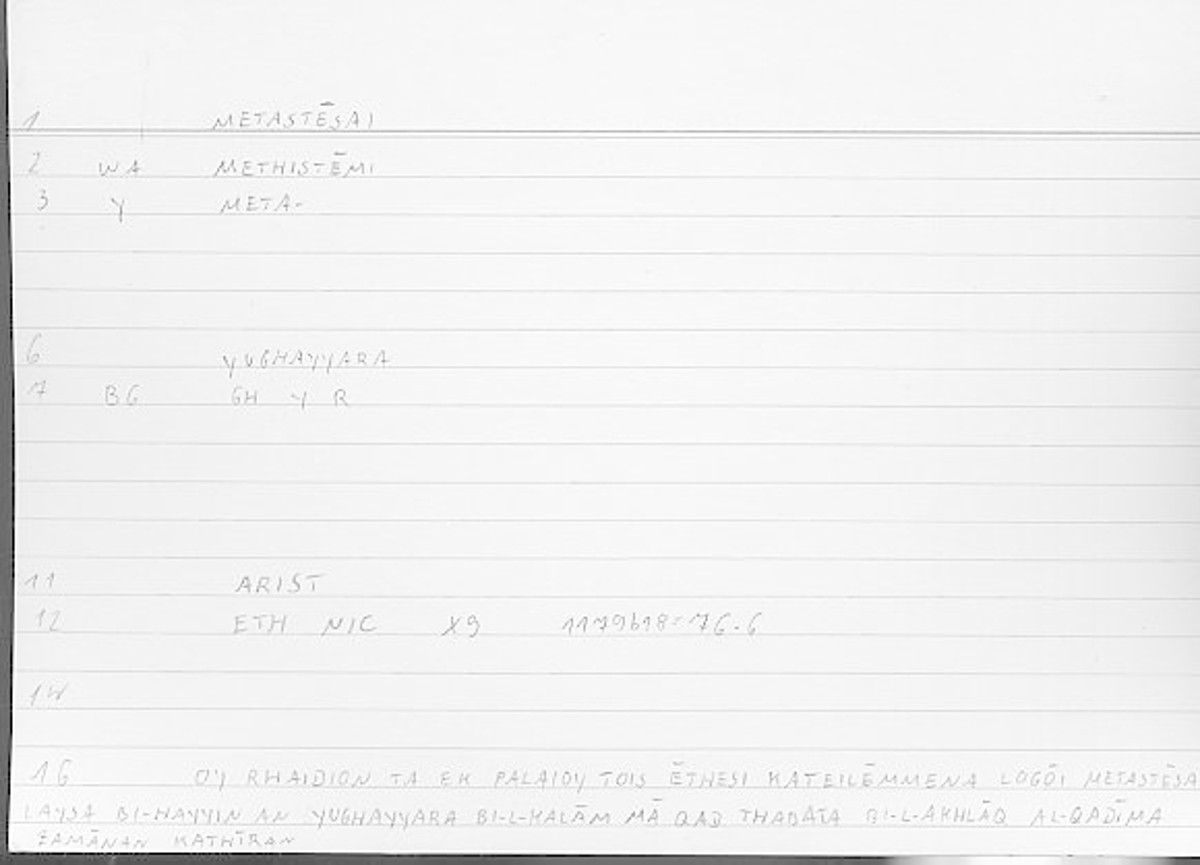 1 METASTĒSAI
2 WA METHISTĒMI
3 Y META-
6 YUGHAYYARA
7 BG GH Y R
11 ARIST
12 ETH NIC X9 1179b18=76.6
14
16 OY RHAIDION TA EK PALAIOY TOIS ĒTHESI KATEILĒMMENA LOGŌI METASTĒSA
LAYSA BI-HAYYIN AN YUGHAYYARA BI-L-KALĀM MĀ QAD THABATA BI-L-AKHLĀQ AL-QADĪMA
ZAMĀNAN KATHĪRAN